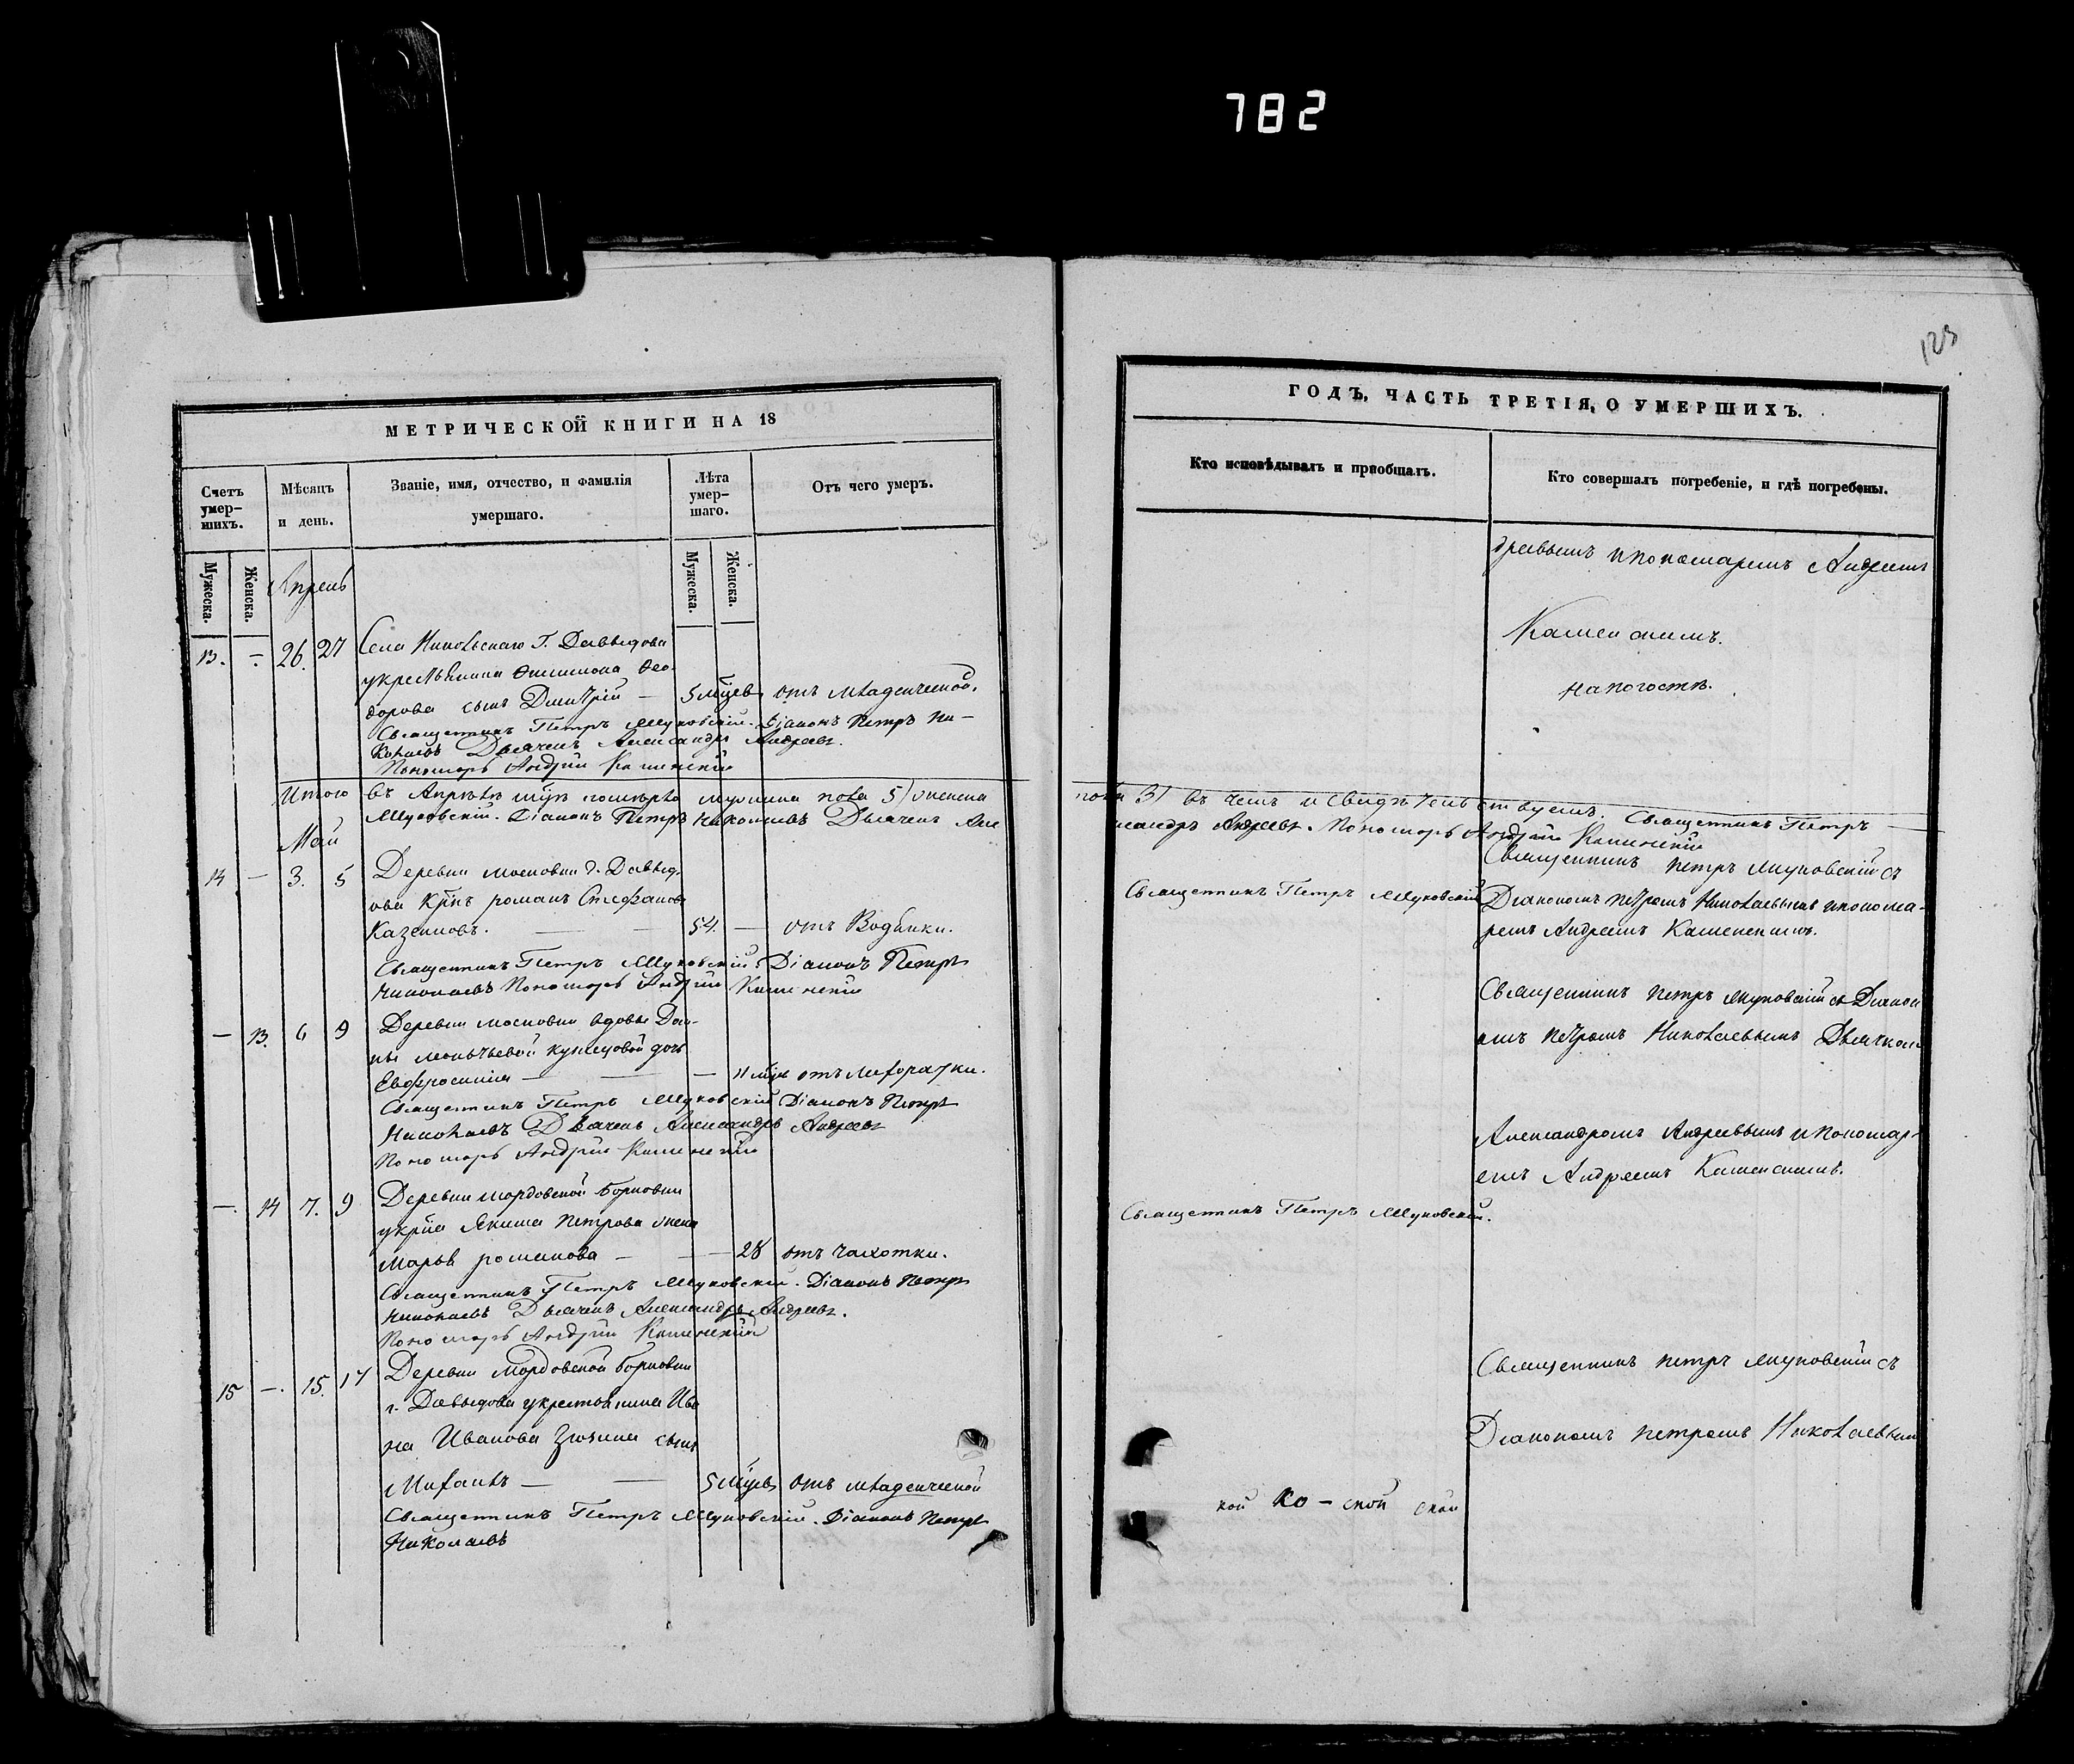 782
123
МЕТРИЧЕСКОЙ КНИГИ НА 18
Счетъ умер-
шихъ.
Мѣсяцъ
и день.
Званіе, имя, отчество, и фамилія
умершаго.
Лѣта
умер-
шаго.
Отъ чего умеръ.
Мужеска.
Женска.
Мужеска.
Женска.
Апрель
13. - 26. 27 Села Никольскаго Г. Давыдова
укрестьянина Филимона Фео-
дорова сынъ Дмитрій — 5 мцевъ отъ младенческой.
Священникъ Петръ Діаконъ Петръ Ни-
колаевъ Дьячекъ Александръ Андреевъ.
Пономарь Андрей Каменскій
Итого въ Апрѣлѣ мцѣ помѣрло мужеска пола 5) женска
Діаконъ Петръ Николаевъ Дьячекъ Але
Май
14 — 3. 5 Деревни Московки г. Давыд-
ова крнъ романъ Стефановъ
Казенновъ. — 54. — отъ Водянки.
Священникъ Петръ Діаконъ Петръ
Николаевъ Пономарь Андрей Каменскій
— 13. 6 9 Деревни Московки вдовы Дом-
ны дочь
Евфросинія — — 11 мцв отъ лихорадки.
Священникъ Петръ Діаконъ Петръ
Николаевъ Дьячекъ Александръ Андреевъ
Пономарь Андрей Каменскій
— 14 7. 9 Деревни Мордовской Борковки
укрна Якима Петрова жена
Марья романова — — 28 отъ чахотки.
Священникъ Петръ Діаконъ Петръ
Николаевъ Дьячекъ Александръ Андреевъ.
Пономарь Андрей Каменскій
15 —. 15. 17 Деревни Мордовской Борковки
г. Давыдова укрестьянина Ива
на Иванова Зюзина сынъ
Михаилъ — 5 мцевъ отъ младенческой
Священникъ Петръ Діаконъ Петръ
Николаевъ
ГОДЪ, ЧАСТЬ ТРЕТІЯ, О УМЕРШИХЪ.
Кто исповѣдывалъ и пріобщалъ.
Кто совершалъ погребеніе, и гдѣ погребены.
дреевымъ ипономаремъ Андреемъ
Каменскимъ.
на погостѣ.
пола 3) въ чемъ и свидѣтельствуемъ. Священникъ Петръ
ксандръ Андреевъ. Пономарь Андрей Каменскій
Священникъ Петръ съ
Священникъ Петръ
Діакономъ Петромъ Николаевымъ ипонома-
ремъ Андреемъ Каменскимъ.
Священникъ Петръ съ Діакон
омъ Петромъ Николаевымъ Дьячкомъ
Александромъ Андреевымъ ипономар-
емъ Андреемъ Каменскимъ.
Священникъ Петръ
Священникъ Петръ съ
Діакономъ Петромъ Николаевымъ
кой ко - ской ской